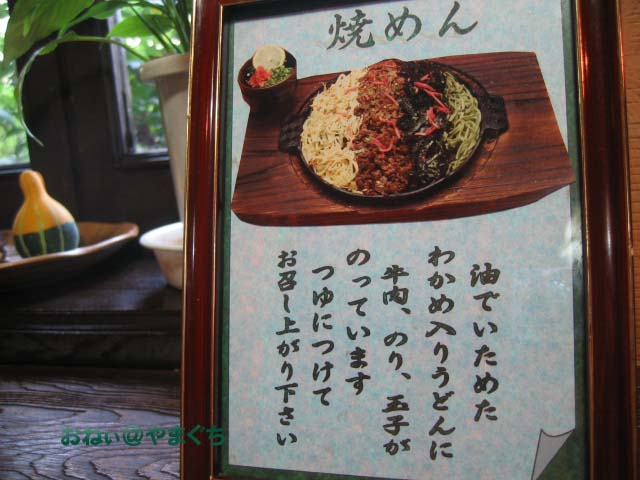 焼めん
油でいためた
わかめ入りうどんに
牛肉、のり、玉子が
のっています
つゆにつけて
お召し上がり下さい
おねぃ@やまぐち